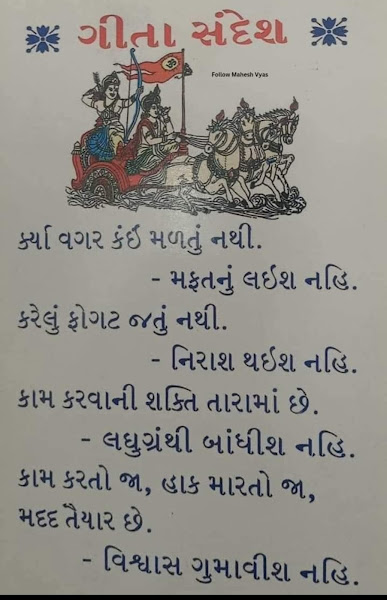 ગીતા સંદેશ
Follow Mahesh Vyas
ર્ક્યા વગર કંઈ મળતું નથી.
- મફતનું લઇશ નહિ.
કરેલું ફોગટ જતું નથી.
- નિરાશ થઇશ નહિ.
કામ કરવાની શક્તિ તારામાં છે.
- લઘુગ્રંથી બાંધીશ નહિ.
કામ કરતો જા, હાક મારતો જા,
મદદ તૈયાર છે.
- વિશ્વાસ ગુમાવીશ નહિ.